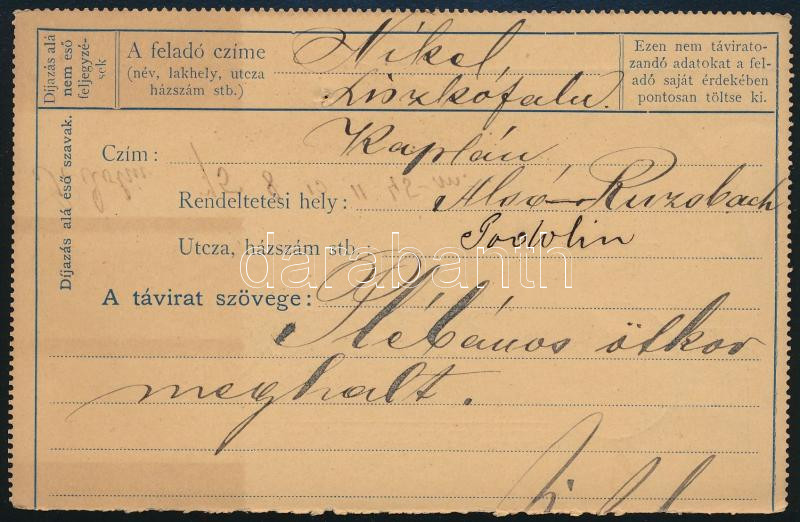 Díjazás alá
nem eső
feljegyzé-
sek
A feladó czíme
(név, lakhely, utcza
házszám stb.)
Nikel,
Liszkófalu.
Ezen nem távirato-
zandó adatokat a fel-
adó saját érdekében
pontosan töltse ki.
Díjazás alá eső szavak.
Czím: Kaplán
Rendeltetési hely: Alsó-Ruzsbach
Utcza, házszám stb.: Podolin
darabanth
A távirat szövege: Plébános ötkor
meghalt.